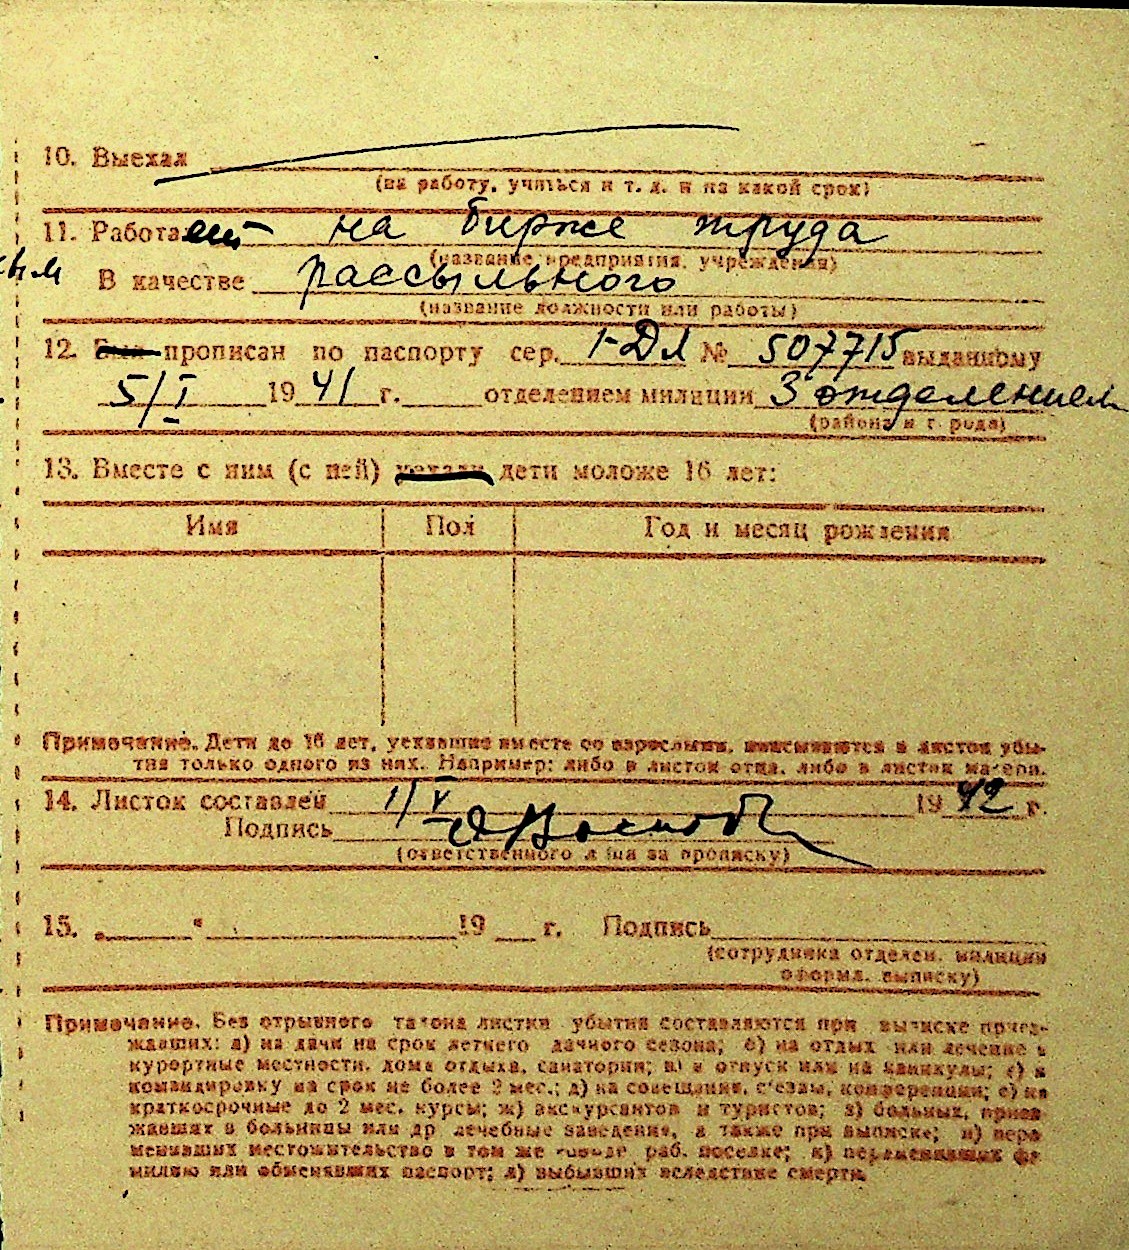 10. Выехал
(на работу, учиться и т. д. и на какой срок)
11. Работает на бирже труда
(название предприятия, учреждения)
В качестве рассыльного
(название должности или работы)
12. Был прописан по паспорту сер. 1-ДЛ № 507715 выданному
5/I 1941 г. отделением милиции 3 отделением
(района и г. рода)
13. Вместе с ним (с ней) уехали дети моложе 16 лет:
Имя Пол Год и месяц рождения
Примечание. Дети до 16 лет, уехавшие вместе со взрослыми, вписываются в листок убы-
тия только одного из них. Например: либо в листок отца, либо в листок матери.
14. Листок составлен 1/V 1942 г.
Подпись
(ответственного лица за прописку)
15. „ “ 19 г. Подпись
(сотрудника отделен. милиции
оформл. выписку)
Примечание. Без отрывного талона листки убытия составляются при выписке приез-
жавших: а) на дачи на срок летнего дачного сезона; б) на отдых или лечение в
курортные местности, дома отдыха, санатории; в) в отпуск или на каникулы; г) в
командировку на срок не более 2 мес.; д) на совещания, с'езды, конференции; е) на
краткосрочные до 2 мес. курсы; ж) экскурсантов и туристов; з) больных, приез
жавших в больницы или др лечебные заведения, а также при выписке; и) пере
менивших местожительство в том же городе раб. поселке; к) переменивших фа
милию или обменявших паспорт; л) выбывших вследствие смерти.